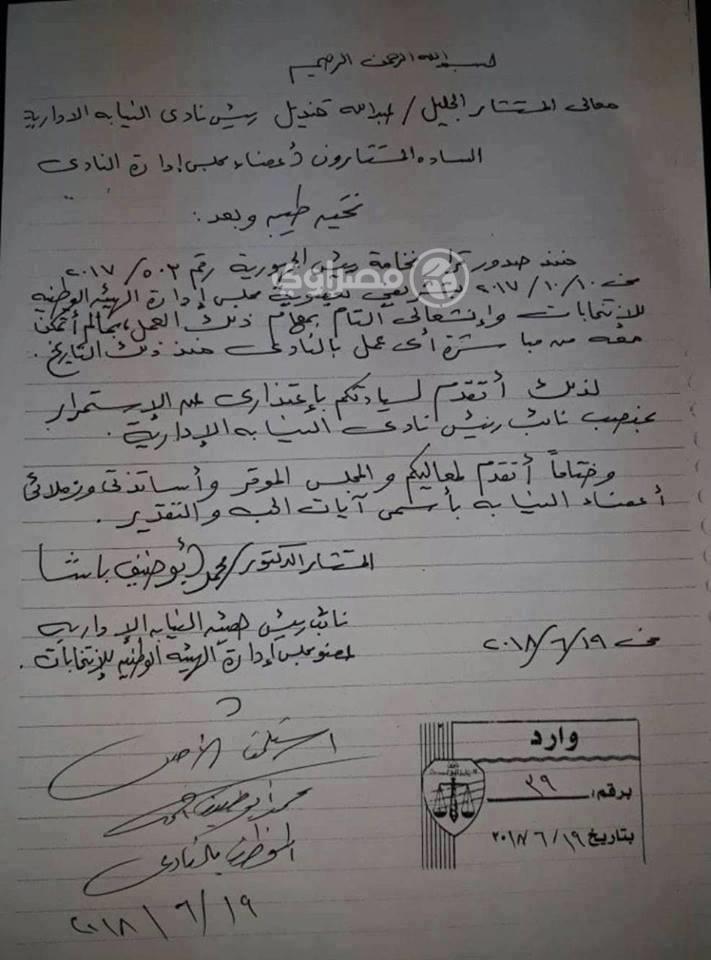 بسم الله الرحمن الرحيم
معالى المستشار الجليل / عبدالله قنديل رئيس نادى النيابه الاداريه
الساده المستشارون أعضاء مجلس إدارة النادى
تحيه طيبه وبعد :
منذ صدور قرار فخامة رئيس الجمهورية رقم ٥٠٣ / ٢٠١٧
فى ١٠ / ١٠ / ٢٠١٧ لعضوية مجلس إدارة الهيئه الوطنيه
للانتخابات وإنشغالى التام بمهام ذلك العمل، بمالم أتمكن
معه من مباشرة أى عمل بالنادى منذ ذلك التاريخ .
لذلك أتقدم لسيادتكم بإعتذارى عن الإستمرار
بمنصب نائب رئيس نادى النيابه الإدارية .
وختاماً أتقدم لمعاليكم والمجلس الموقر وأساتذتى وزملائى
أعضاء النيابه بأسمى آيات الحب والتقدير .
المستشار الدكتور / محمد أبوضيف باشا
نائب رئيس هيئه النيابه الإداريه
عضو مجلس إدارة الهيئه الوطنيه للإنتخابات .
فى ١٩ / ٦ / ٢٠١٨
استلمت الأصل
محمد
الموظف بالنادى
١٩ / ٦ / ٢٠١٨
وارد
برقم : ٣٩
بتاريخ ١٩ / ٦ / ٢٠١٨
مصراوي